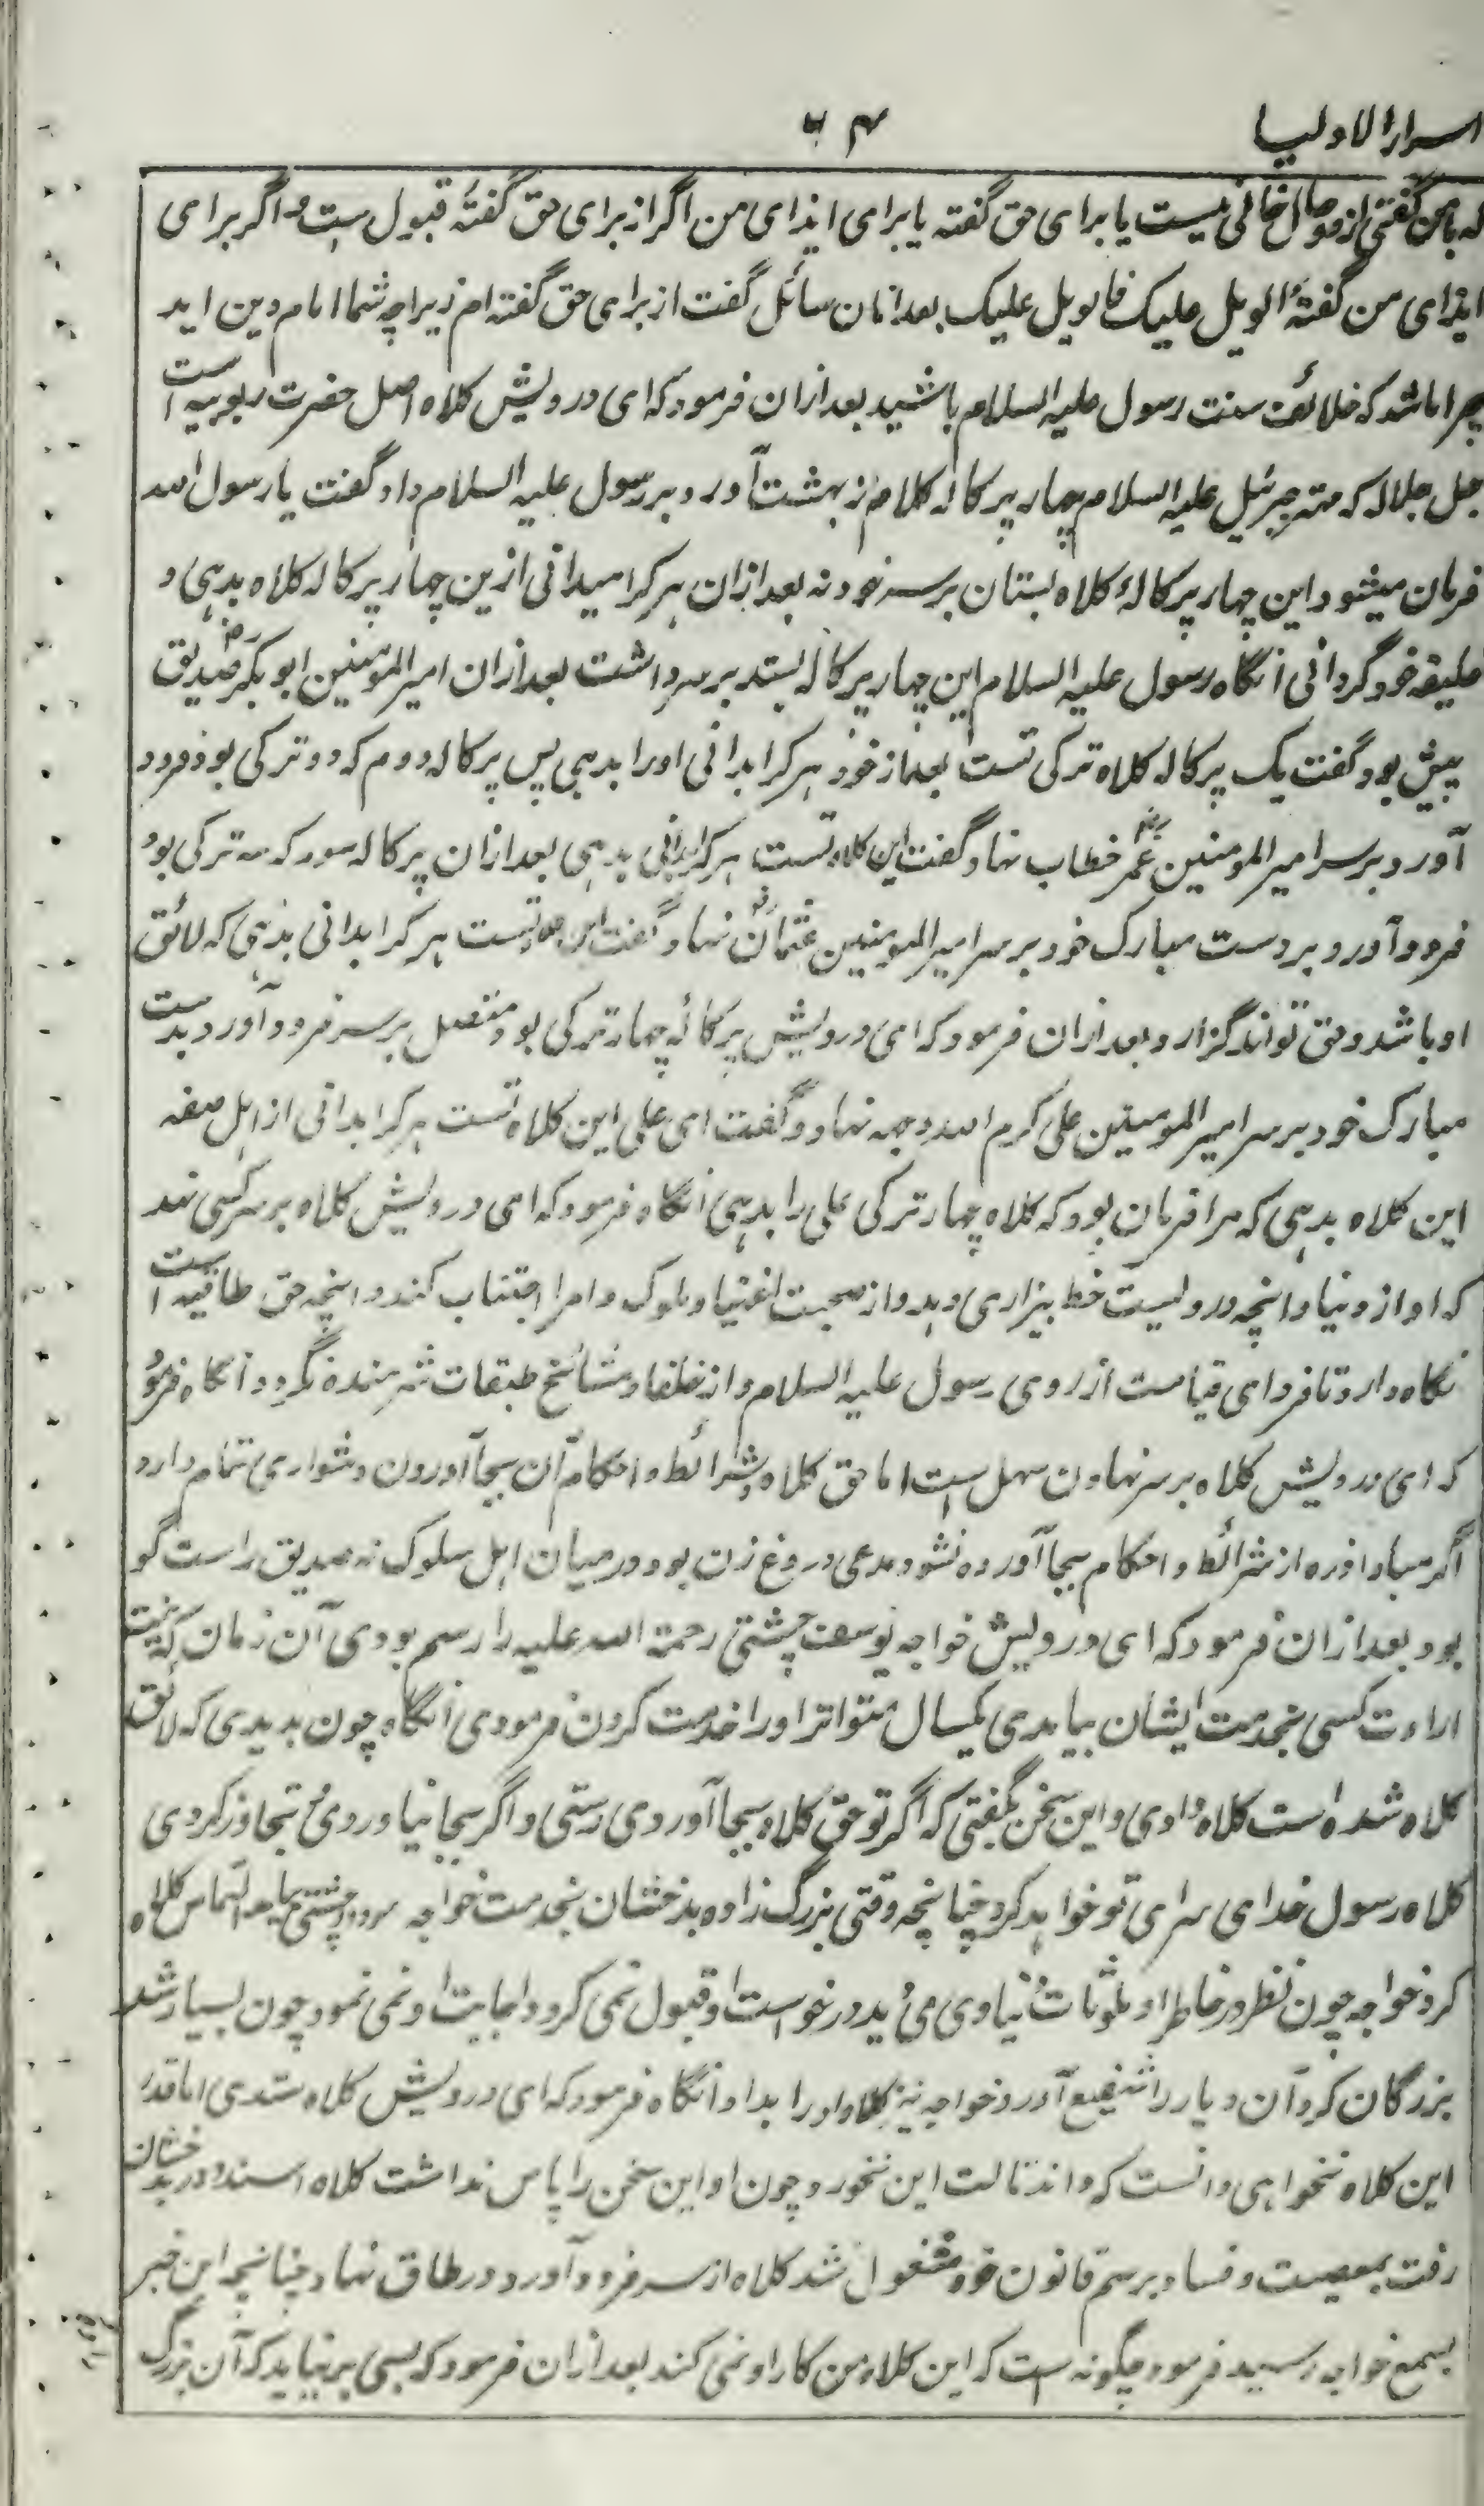 اسرار الاولیا
۴۲
که با من گفتی از دو حال خالی نیست یا برای حق گفته یا برای ایذای من اگر از برای حق گفتهٔ قبول است و اگر برای
ایذای من گفتهٔ الویل علیک فالویل علیک بعد ازان سائل گفت از برای حق گفته ام زیرا چه شما امام دین اید
چرا باشد که خلائف سنت رسول علیه السلام باشید بعد ازان فرمود که ای درویش کلاه اصل حضرت ربوبیه است
جل جلاله که مهتر جبرئیل علیه السلام چهار پرکاله کلاه از بهشت آورد و بر رسول علیه السلام داد و گفت یا رسول الله
فرمان میشود این چهار پرکالهٔ کلاه بستان بر سر خود نه بعد ازان هر کرا میدانی ازین چهار پرکاله کلاه بدهی و
خلیفه خود گردانی آنگاه رسول علیه السلام این چهار پرکاله بستد بر سر داشت بعد ازان امیر المومنین ابو بکر صدیق رض
پیش بود گفت یک پرکاله کلاه ترکی تست بعد از خود هر کرا بدانی او را بدهی پس پرکاله دوم که دو ترکی بود فرود
آورد بر سر امیر المومنین عمر رض خطاب نهاد و گفت این کلاه تست هر کرا بدانی بدهی بعد ازان پرکاله سوم که سه ترکی بود
فرود آورد و بر دست مبارک خود بر سر امیر المومنین عثمان رض نهاد و گفت این کلاه تست هر کرا بدانی بدهی که لائق
او باشد و حق تواند گزارد و بعد ازان فرمود که ای درویش پرکالهٔ چهار ترکی بود متصل بر سر فرود آورد و بدست
مبارک خود بر سر امیر المومنین علی کرم الله وجهه نهاد و گفت ای علی این کلاه تست هر کرا بدانی از اهل صفه
این کلاه بدهی که مرا فرمان بود که کلاه چهار ترکی علی را بدهی آنگاه فرمود که ای درویش کلاه بر سر کسی نهد
که او از دنیا و انچه درویست خط بیزاری دهد و از صحبت اغنیا و ملوک و امرا اجتناب کند و انچه حق طاقیه است
نگاه دارد تا فردای قیامت از روی رسول علیه السلام و از خلفا و مشائخ طبقات شرمنده نگردد آنگاه فرمود
که ای درویش کلاه بر سر نهادن سهل است اما حق کلاه و شرائط و احکام آن بجا آوردن دشواری تمام دارد
اگر مبادا ذره از شرائط و احکام بجا آورده نشود مدعی دروغ زن بود در میان اهل سلوک نه صدیق راست گو
بود بعد ازان فرمود که ای درویش خواجه یوسف چشتی رحمة الله علیه را رسم بودی آن زمان که به نیت
ارادت کسی بخدمت ایشان بیامدی یکسال متواتر او را خدمت کردن فرمودی آنگاه چون بدیدی که لائق
کلاه شده است کلاه دادی و این سخن بگفتی که اگر تو حق کلاه بجا آوردی رستی و اگر بجا نیاوردی و تجاوز کردی
کلاه رسول خدای سزای تو خواهد کرد چنانچه وقتی بزرگ زاده بدخشان بخدمت خواجه مودود چشتی بیامد التماس کلاه
کرد خواجه چون نظر در خاطر او بلوثات دنیاوی می دید درخواست او قبول نمی کرد و اجابت او نمی نمود چون بسیار شد
بزرگان گرد آن دیار را شفیع آورد خواجه نیز کلاه او را بداد آنگاه فرمود که ای درویش کلاه ستدی اما قدر
این کلاه نخواهی دانست که این نخورد چون او این سخن را پاس نداشت کلاه استد و در بدخشان
رفت بمعصیت و فساد بر رسم قانون خود مشغول شد کلاه از سر فرود آورد و در طاق نهاد چنانچه این خبر
بسمع خواجه رسید فرمود چگونه است که این کلاه من کار او نمی کند بعد ازان فرمود که بسی بر نیاید که آن بزرگ